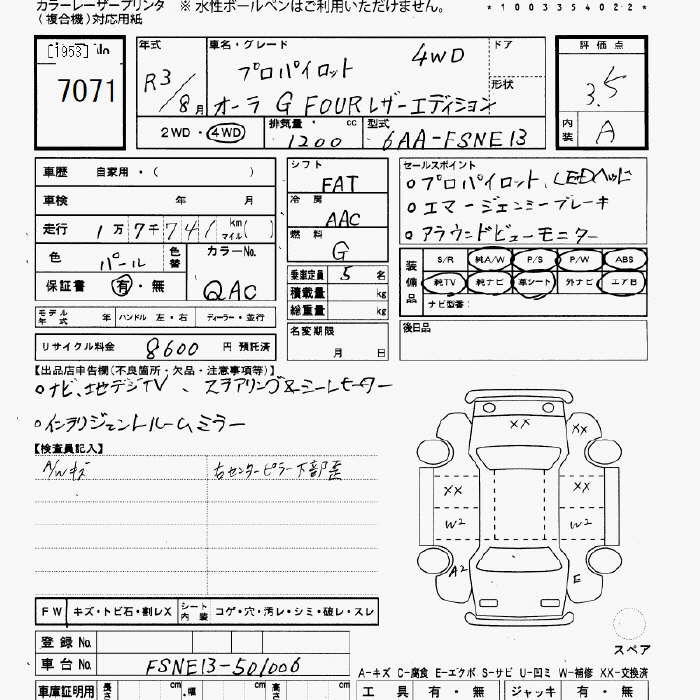 カラーレーザープリンタ ※ 水性ボールペンはご利用いただけません。 *100335402-2*
(複合機)対応用紙
[1953] No
7071
年式 R3/8月
車名・グレード プロパイロット 4WD
オーラ G FOURレザーエディション
ドア
形状
評価点 3.5
内装 A
2WD・4WD
排気量・cc 1200
型式 6AA-FSNE13
車歴 自家用・( )
車検 年 月
走行 1万7千741 km マイル( )
色 パール 色替
カラーNo. QAC
保証書 有・無
モデル年式 年 ハンドル 左・右 ディーラー・並行
リサイクル料金 8600 円 預託済
シフト FAT
冷房 AAC
燃料 G
乗車定員 5 名
積載量 kg
総重量 kg
名変期限
月 日
セールスポイント
oプロパイロット、LEDヘッド
oエマージェンシーブレーキ
oアラウンドビューモニター
装備品
S/R 純A/W P/S P/W ABS
純TV 純ナビ 革シート 外ナビ エアB
ナビ型番:
後日品
【出品店申告欄(不良箇所・欠品・注意事項等)】
oナビ、地デジTV、ステアリング&シートヒーター
oインテリジェントルームミラー
【検査員記入】
A/Wキズ
右センターピラー下部歪
XX
XX
XX
XX
W2
W2
A2
E
スペア
FW キズ・トビ石・割レX シート内装 コゲ・穴・汚レ・シミ・破レ・スレ
登録 No.
車台 No. FSNE13-501006
A-キズ C-腐食 E-エクボ S-サビ U-凹ミ W-補修 XX-交換済
車庫証明用 長さ cm ・幅 cm 高さ cm
工具 有・無 ジャッキ 有・無